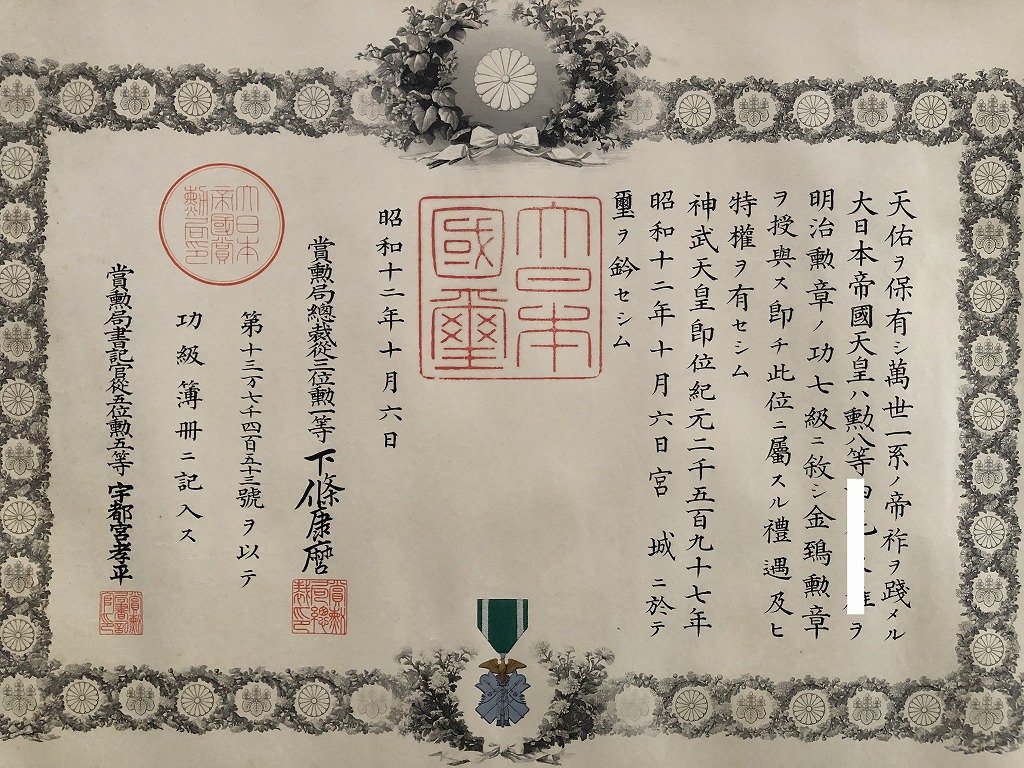 天佑ヲ保有シ萬世一系ノ帝祚ヲ踐メル
大日本帝國天皇ハ勲八等ヲ
明治勲章ノ功七級ニ敘シ金鵄勲章
ヲ授與ス即チ此位ニ屬スル禮遇及ヒ
特權ヲ有セシム
神武天皇即位紀元二千五百九十七年
昭和十二年十月六日宮城ニ於テ
璽ヲ鈐セシム
大日本
國璽
昭和十二年十月六日
賞勲局總裁從三位勲一等下條康麿
賞勲局總裁印
第十三万七千四百五十三號ヲ以テ
功級簿册ニ記入ス
大日本
帝國賞
勲局印
賞勲局書記官從五位勲五等宇都宮孝平